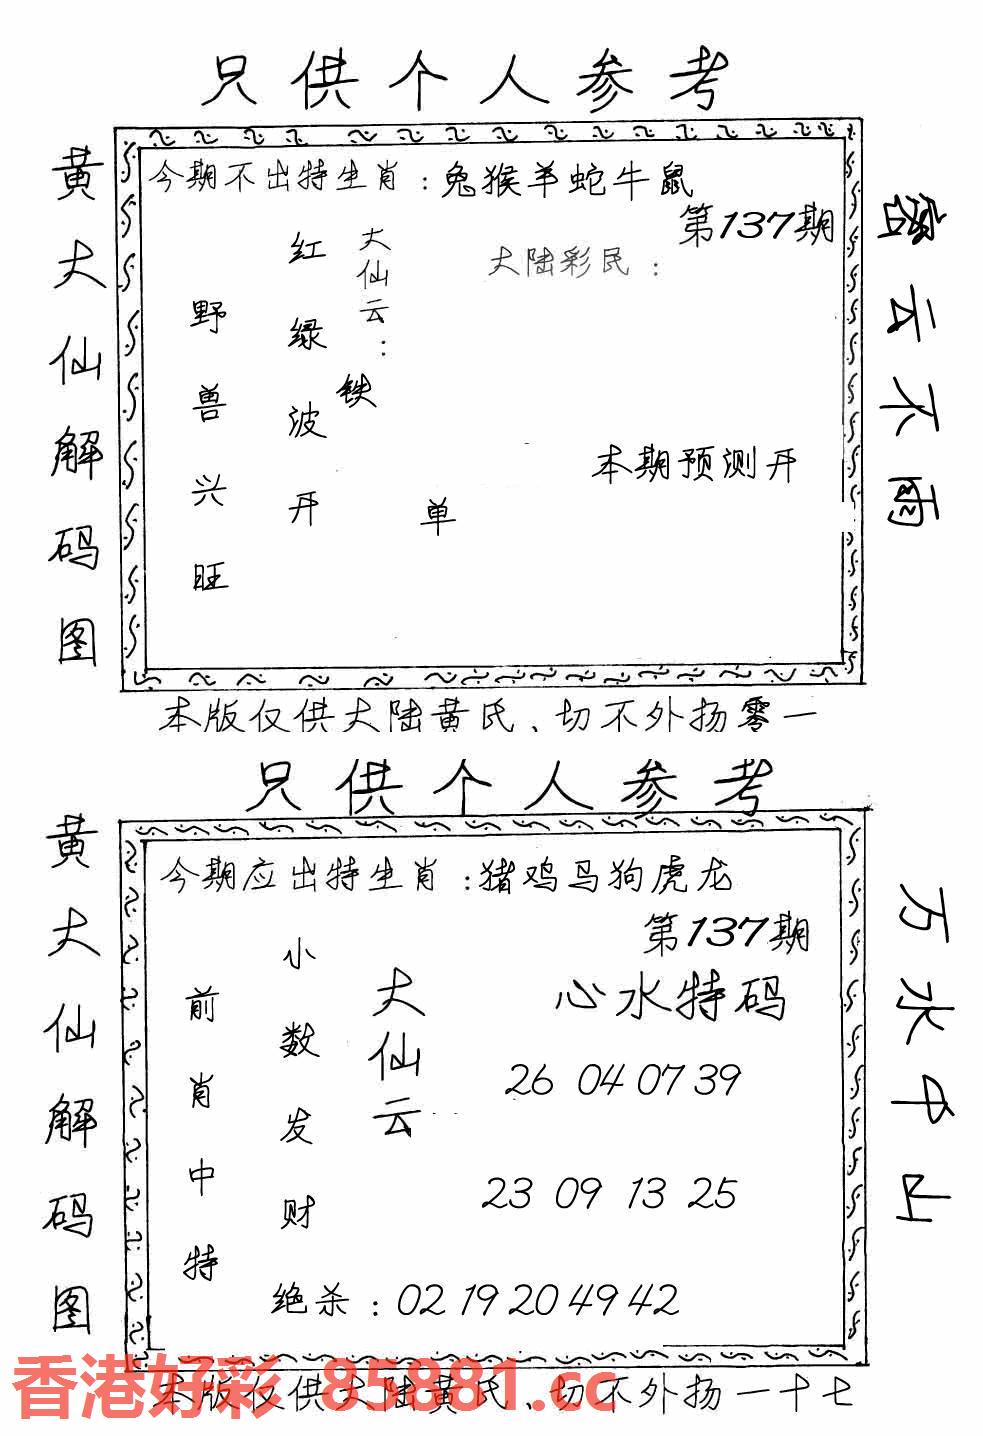 只供个人参考
黄大仙解码图
今期不出特生肖：兔猴羊蛇牛鼠
第137期
大陆彩民：
大仙云：
铁
红绿波开
单
野兽兴旺
本期预测开
密云不雨
本版仅供大陆黄氏、切不外扬零一
只供个人参考
黄大仙解码图
今期应出特生肖：猪鸡马狗虎龙
第137期
心水特码
大仙云
小数发财
前肖中特
26 04 07 39
23 09 13 25
绝杀：02 19 20 49 42
万水中山
香港好彩 85881.cc
本版仅供大陆黄氏、切不外扬一十七